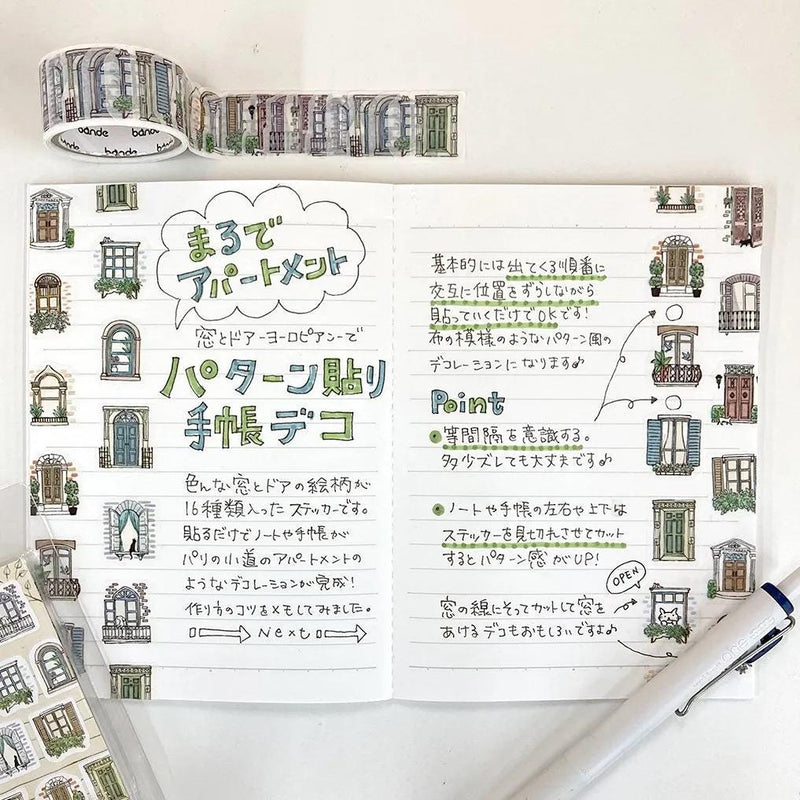 bande
bande
bande
まるで
アパートメント
窓とドアーヨーロピアンーで
パターン貼り
手帳デコ
色んな窓とドアの絵柄が
16種類入ったステッカーです。
貼るだけでノートや手帳が
パリの小道のアパートメントの
ようなデコレーションが完成!
作り方のコツをメモしてみました。
Next
基本的には出てくる順番に
交互に位置をずらしながら
貼っていくだけでOKです!
布の模様のようなパターン風の
デコレーションになります♪
Point
等間隔を意識する。
多少ズレても大丈夫です♪
ノートや手帳の左右や上下は
ステッカーを見切れさせてカット
するとパターン感がUP!
OPEN
窓の線にそってカットして窓を
あけるデコもおもしろいですよ♪